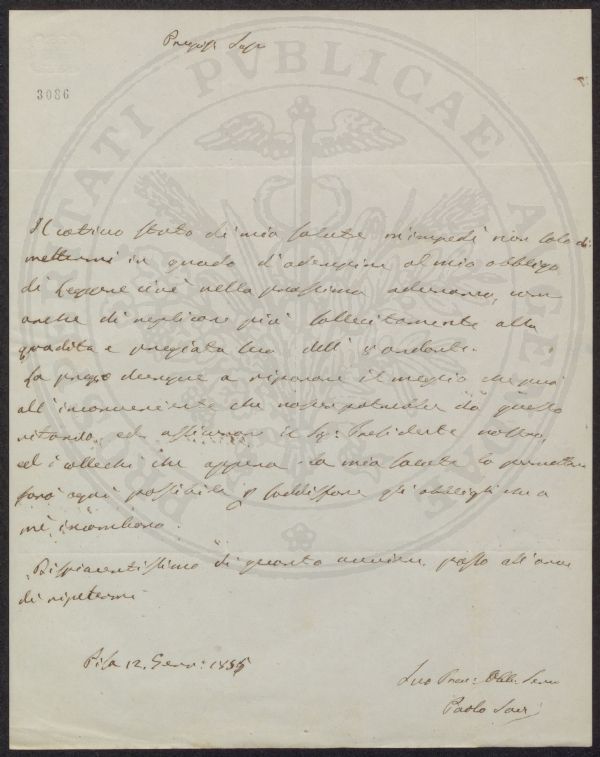 3086
Il cattivo stato di mia salute m'impedì non solo di
mettermi in grado d'adempire al mio obbligo
di leggere cioè nella prossima adunanza,
anche di replicare più sollecitamente alla
gradita e pregiata sua dell' 8 andante.
La prego dunque a riparare il meglio che può
all'inconveniente che questo
ritardo, ed assicurare il Sig: Presidente nostro,
ed i colleghi che appena la mia salute lo permetta
farò ogni possibile p soddisfare gli obblighi che a
mè incombono.
Dispiacentissimo di quanto avviene passo all'onore
di ripetermi
Pisa 12. Genn: 1835
Suo Dev: Obb: Serv
Paolo Savi
PROSPERITATI PVBLICAE AVGENDAE